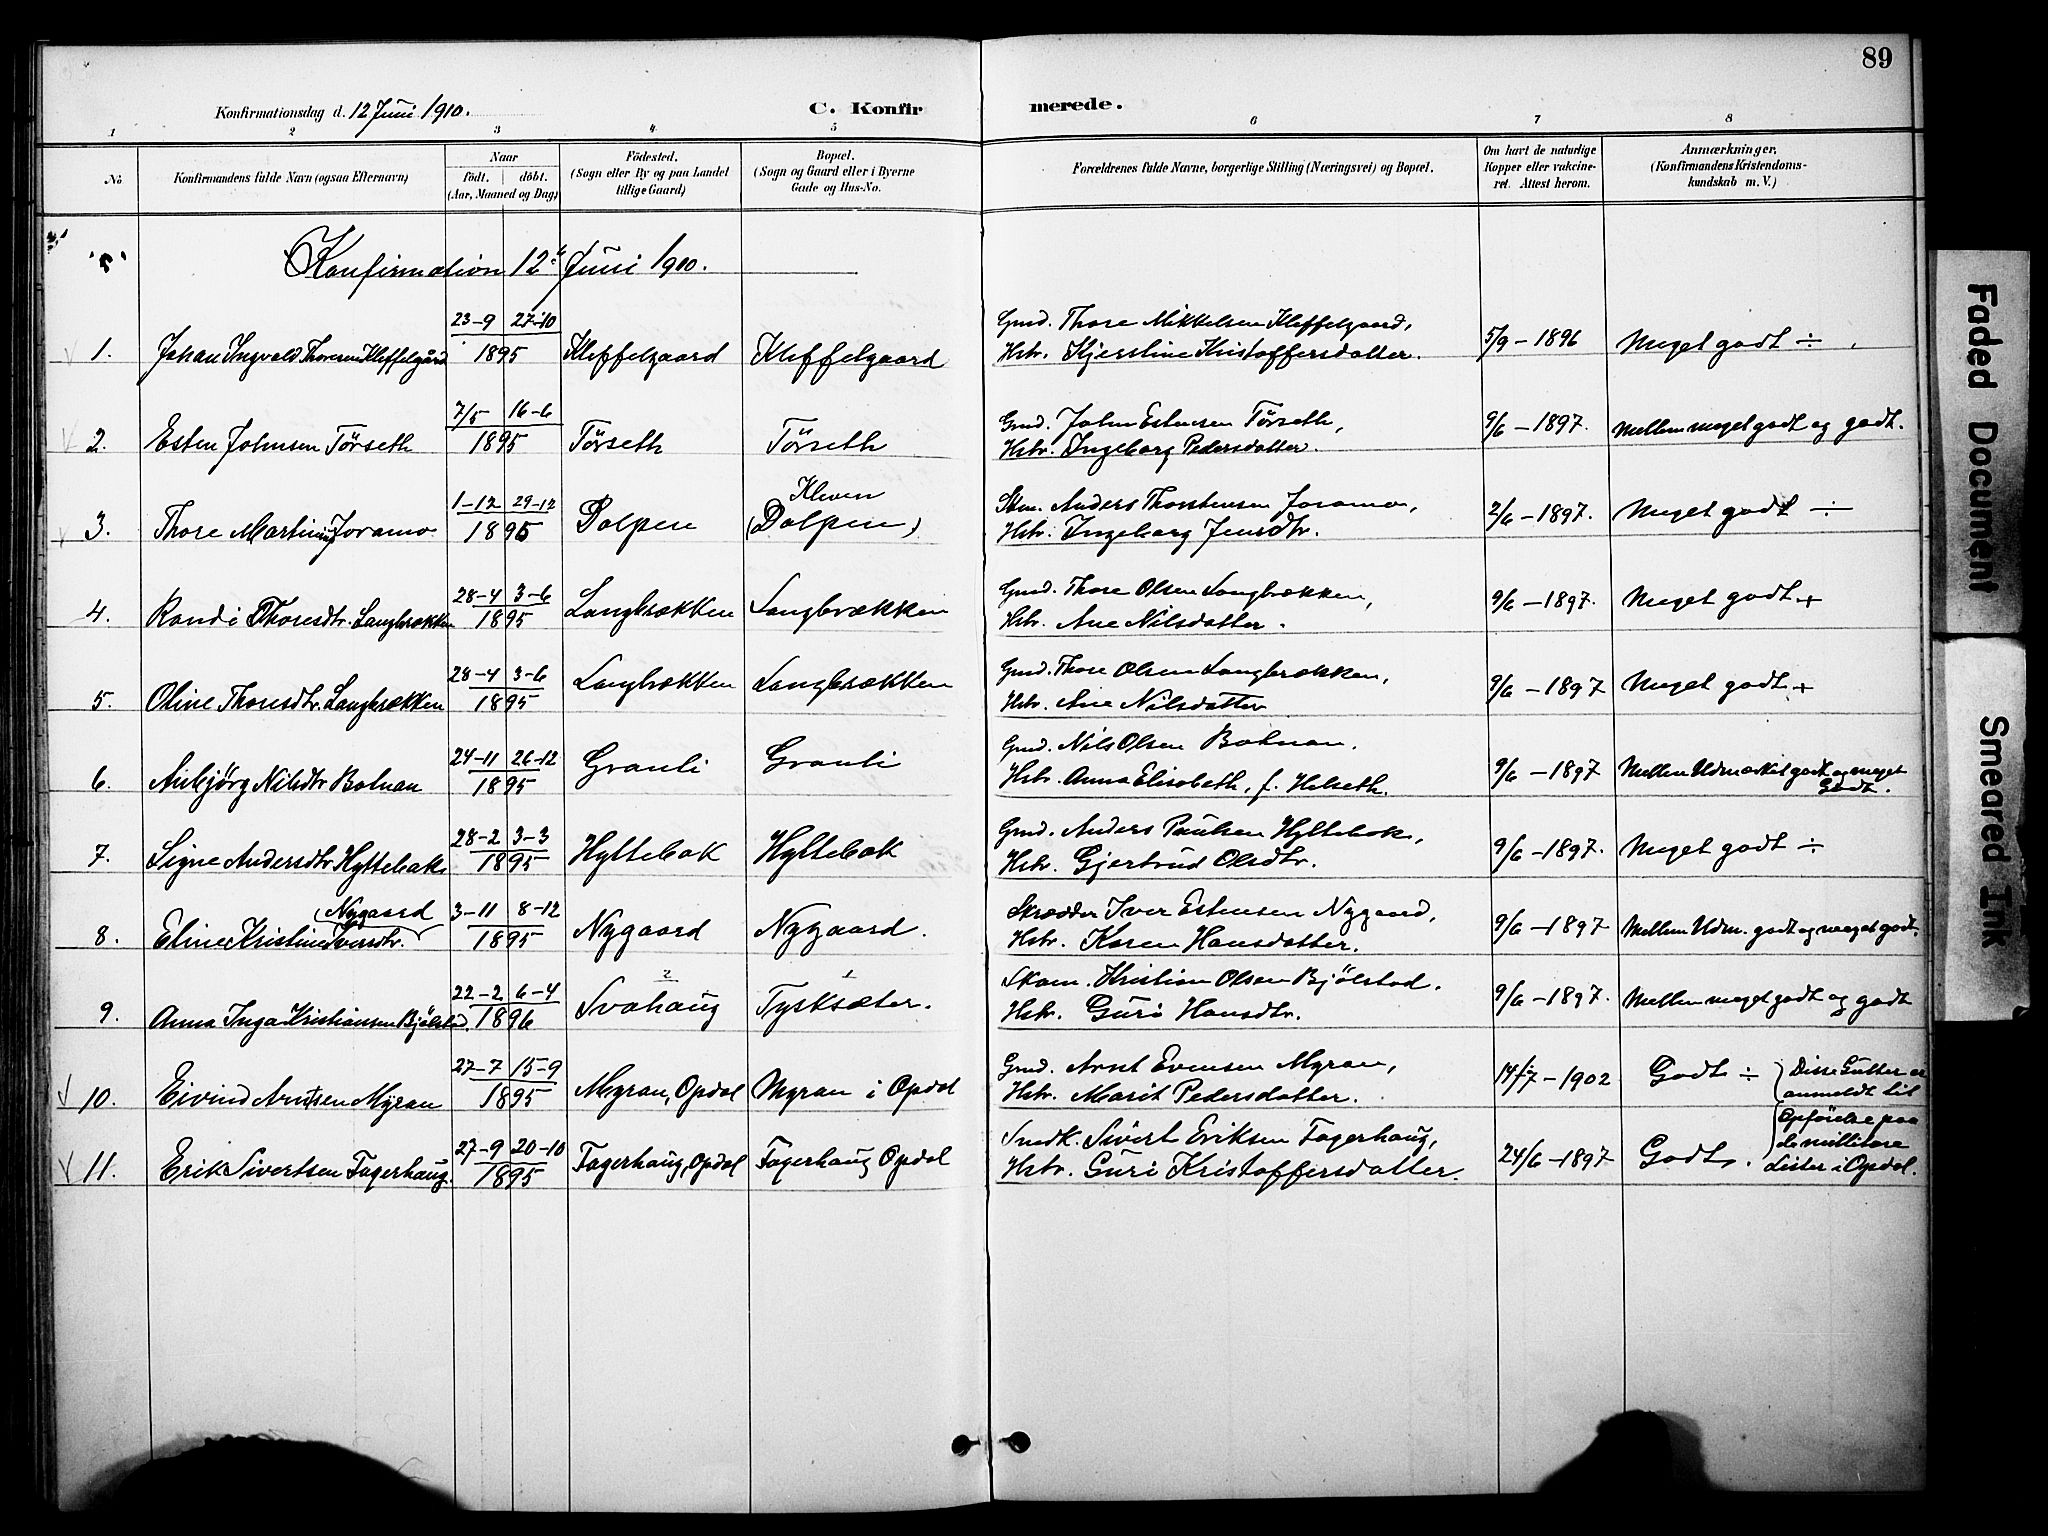 89
Konfirmationsdag d. 12 Juni 1910.
C. Konfirmerede.
1 2 3 4 5 6 7 8
No
Konfirmandens fulde Navn (ogsaa Efternavn)
Naar
födt. döbt.
(Aar, Maaned og Dag)
Födested.
(Sogn eller By og paa Landet
tillige Gaard)
Bopæl.
(Sogn og Gaard eller i Byerne
Gade og Hus-No.
Forældrenes fulde Navne, borgerlige Stilling (Næringsvei) og Bopæl.
Om havt de naturlige
Kopper eller vakcine-
ret. Attest herom.
Anmærkninger,
(Konfirmandens Kristendoms-
kundskab m. V.)
Konfirmation 12te Juni 1910.
1. Johan Ingvald Thoresen Kleffelgård 23-9 27-10 1895 Kleffelgaard Kleffelgaard
Gmd. Thore Mikkelsen Kleffelgaard,
Hstr. Kjerstine Kristoffersdatter. 5/9 - 1896 Meget godt ÷
2. Esten Johnsen Törseth 7/5 16-6 1895 Törseth Törseth
Gmd. John Estensen Törseth,
Hstr. Ingeborg Pedersdatter. 9/6 - 1897. Mellem meget godt og godt.
3. Thore Martinus Joramo 1-12 29-12 1895 Dalpen Kleven (Dalpen)
Anders Thorstensen Joramo,
Hstr. Ingeborg Jensdtr. 2/6 - 1897. Meget godt ÷
4. Randi Thoresdtr. Langbrækken 28-4 3-6 1895 Langbrækken Langbrækken
Gmd. Thore Olsen Langbrækken,
Hstr. Ane Nilsdatter. 9/6 - 1897. Meget godt +
5. Oline Thoresdtr. Langbrækken 28-4 3-6 1895 Langbrækken Langbrækken
Gmd. Thore Olsen Langbrækken,
Hstr. Ane Nilsdatter 9/6 - 1897 Meget godt +
6. Anbjörg Nilsdtr Bolnan 24-11 26-12 1895 Granli Granli
Gmd. Nils Olsen Bolnan.
Hstr. Anna Elisabeth, f. Helseth. 9/6 - 1897 Mellem Udmærket godt og meget
Godt.
7. Signe Andersdtr Hyttebak 28-2 3-3 1895 Hyttebak Hyttebak
Gmd. Anders Paulsen Hyttebak,
Hstr. Gjertrud Olsdtr. 9/6 - 1897. Meget godt ÷
8. Eline Kristine Iversdtr. (Nygaard 3-11 8-12 1895 Nygaard Nygaard.
Skrædder Iver Estensen Nygaard,
Hstr. Karen Hansdatter. 9/6 - 1897 Mellem Udm. godt og meget godt.
9. Anna Inga Kristiansen Bjölstad. 22-2 6-4 1896 2 Svahaug 1 Tysksæter.
Skom. Kristian Olsen Bjölstad.
Hstr. Guri Hansdtr. 9/6 - 1897. Mellem meget godt og godt
10. Eivind Arntsen Myran 27-7 15-9 1895 Myran, Opdal Myran i Opdal
Gmd. Arnt Evensen Myran,
Hstr. Marit Pedersdatter. 14/7 - 1902 Godt ÷ Disse Gutter er
anmeldt til
11. Erik Sivertsen Fagerhaug. 27-9 20-10 1895 Fagerhaug, Opdal Fagerhaug Opdal
Smdk. Sivert Eriksen Fagerhaug,
Hstr. Guri Kristoffersdatter. 24/6 - 1897 Godt. Opförelse paa
de militære
Lister i Opdal.
Faded Document
Smeared Ink